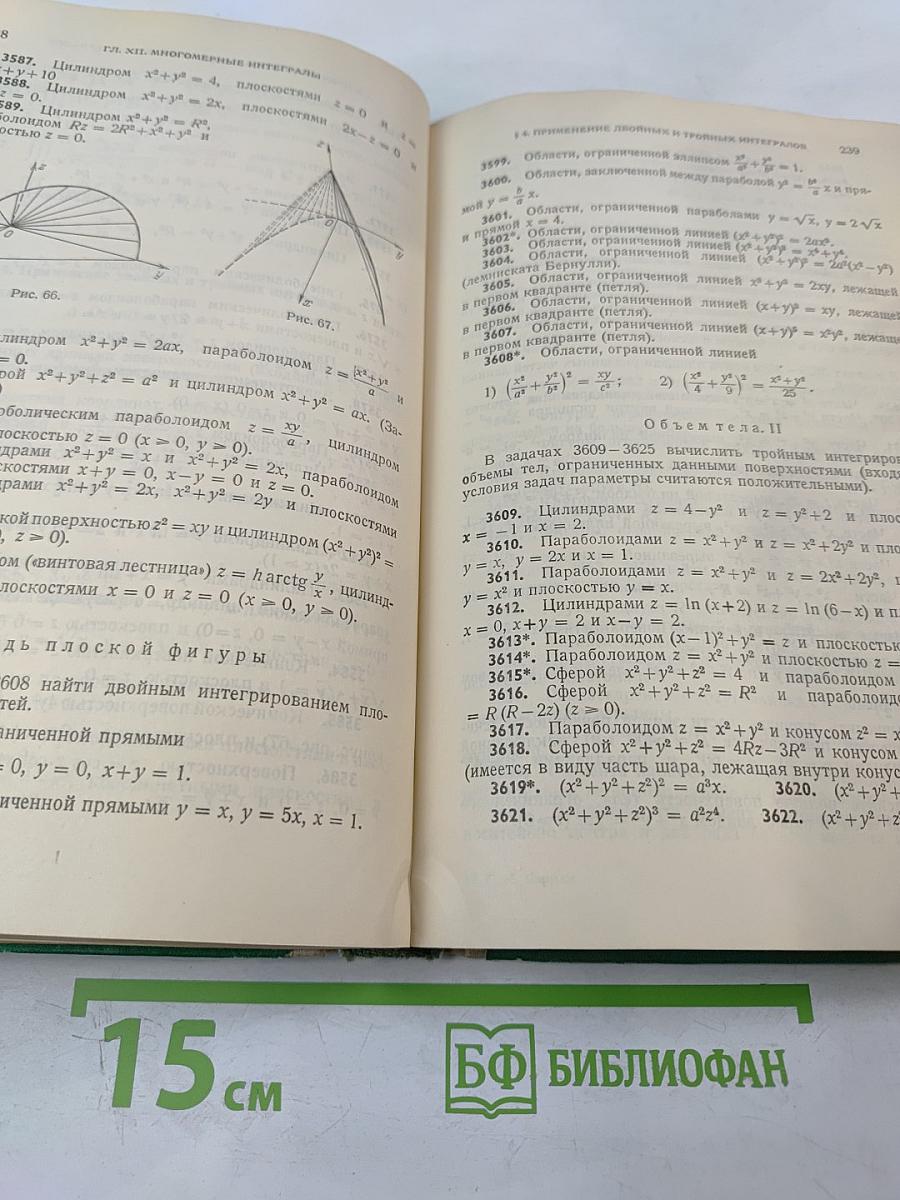 8
ГЛ. XII. МНОГОМЕРНЫЕ ИНТЕГРАЛЫ
3587. Цилиндром x²+y² = 4, плоскостями z = 0 и z =
x+y+10
3588. Цилиндром x²+y² = 2x, плоскостями 2x−z = 0 и
z = 0.
589. Цилиндром x²+y² = R²,
болоидом Rz = 2R²+x²+y² и
остью z = 0.
z
O
y
Рис. 66.
z
O
x
y
Рис. 67.
линдром x²+y² = 2ax, параболоидом z = (x²+y²)/a и
= 0.
рой x²+y²+z² = a² и цилиндром x²+y² = ax. (За-
)
рболическим параболоидом z = xy/a, цилиндром
лоскостью z = 0 (x ⩾ 0, y ⩾ 0).
ндрами x²+y² = x и x²+y² = 2x, параболоидом
скостями x+y = 0, x−y = 0 и z = 0.
драми x²+y² = 2x, x²+y² = 2y и плоскостями
ской поверхностью z² = xy и цилиндром (x²+y²)² =
0, z ⩾ 0).
ом («винтовая лестница») z = h arctg y/x, цилинд-
плоскостями x = 0 и z = 0 (x ⩾ 0, y ⩾ 0).
дь плоской фигуры
3608 найти двойным интегрированием пло-
тей.
раниченной прямыми
= 0, y = 0, x+y = 1.
ниченной прямыми y = x, y = 5x, x = 1.
§ 4. ПРИМЕНЕНИЕ ДВОЙНЫХ И ТРОЙНЫХ ИНТЕГРАЛОВ
239
3599. Области, ограниченной эллипсом x²/a² + y²/b² = 1.
3600. Области, заключенной между параболой y² = b²/a x и пря-
мой y = b/a x.
3601. Области, ограниченной параболами y = √x, y = 2√x
и прямой x = 4.
3602*. Области, ограниченной линией (x²+y²)² = 2ax³.
3603. Области, ограниченной линией (x²+y²)³ = x⁴+y⁴.
3604. Области, ограниченной линией (x²+y²)² = 2a²(x²−y²)
(лемниската Бернулли).
3605. Области, ограниченной линией x³+y³ = 2xy, лежащей
в первом квадранте (петля).
3606. Области, ограниченной линией (x+y)³ = xy, лежащей
в первом квадранте (петля).
3607. Области, ограниченной линией (x+y)⁵ = x²y², лежаще
в первом квадранте (петля).
3608*. Области, ограниченной линией
1) (x²/a² + y²/b²)² = xy/c²; 2) (x²/4 + y²/9)² = (x²+y²)/25.
Объем тела. II
В задачах 3609—3625 вычислить тройным интегриров
объемы тел, ограниченных данными поверхностями (входя
условия задач параметры считаются положительными).
3609. Цилиндрами z = 4−y² и z = y²+2 и плос
x = −1 и x = 2.
3610. Параболоидами z = x²+y² и z = x²+2y² и пло
y = x, y = 2x и x = 1.
3611. Параболоидами z = x²+y² и z = 2x²+2y², ц
y = x² и плоскостью y = x.
3612. Цилиндрами z = ln (x+2) и z = ln (6−x) и п
x = 0, x+y = 2 и x−y = 2.
3613*. Параболоидом (x−1)²+y² = z и плоскостью
3614*. Параболоидом z = x²+y² и плоскостью z =
3615*. Сферой x²+y²+z² = 4 и параболоидом
3616. Сферой x²+y²+z² = R² и параболоид
= R (R−2z) (z ⩾ 0).
3617. Параболоидом z = x²+y² и конусом z² = x
3618. Сферой x²+y²+z² = 4Rz−3R² и конусом
(имеется в виду часть шара, лежащая внутри конус
3619*. (x²+y²+z²)² = a³x. 3620. (x²+y²+
3621. (x²+y²+z²)³ = a²z⁴. 3622. (x²+y²+z
15 см
БФ БИБЛИОФАН